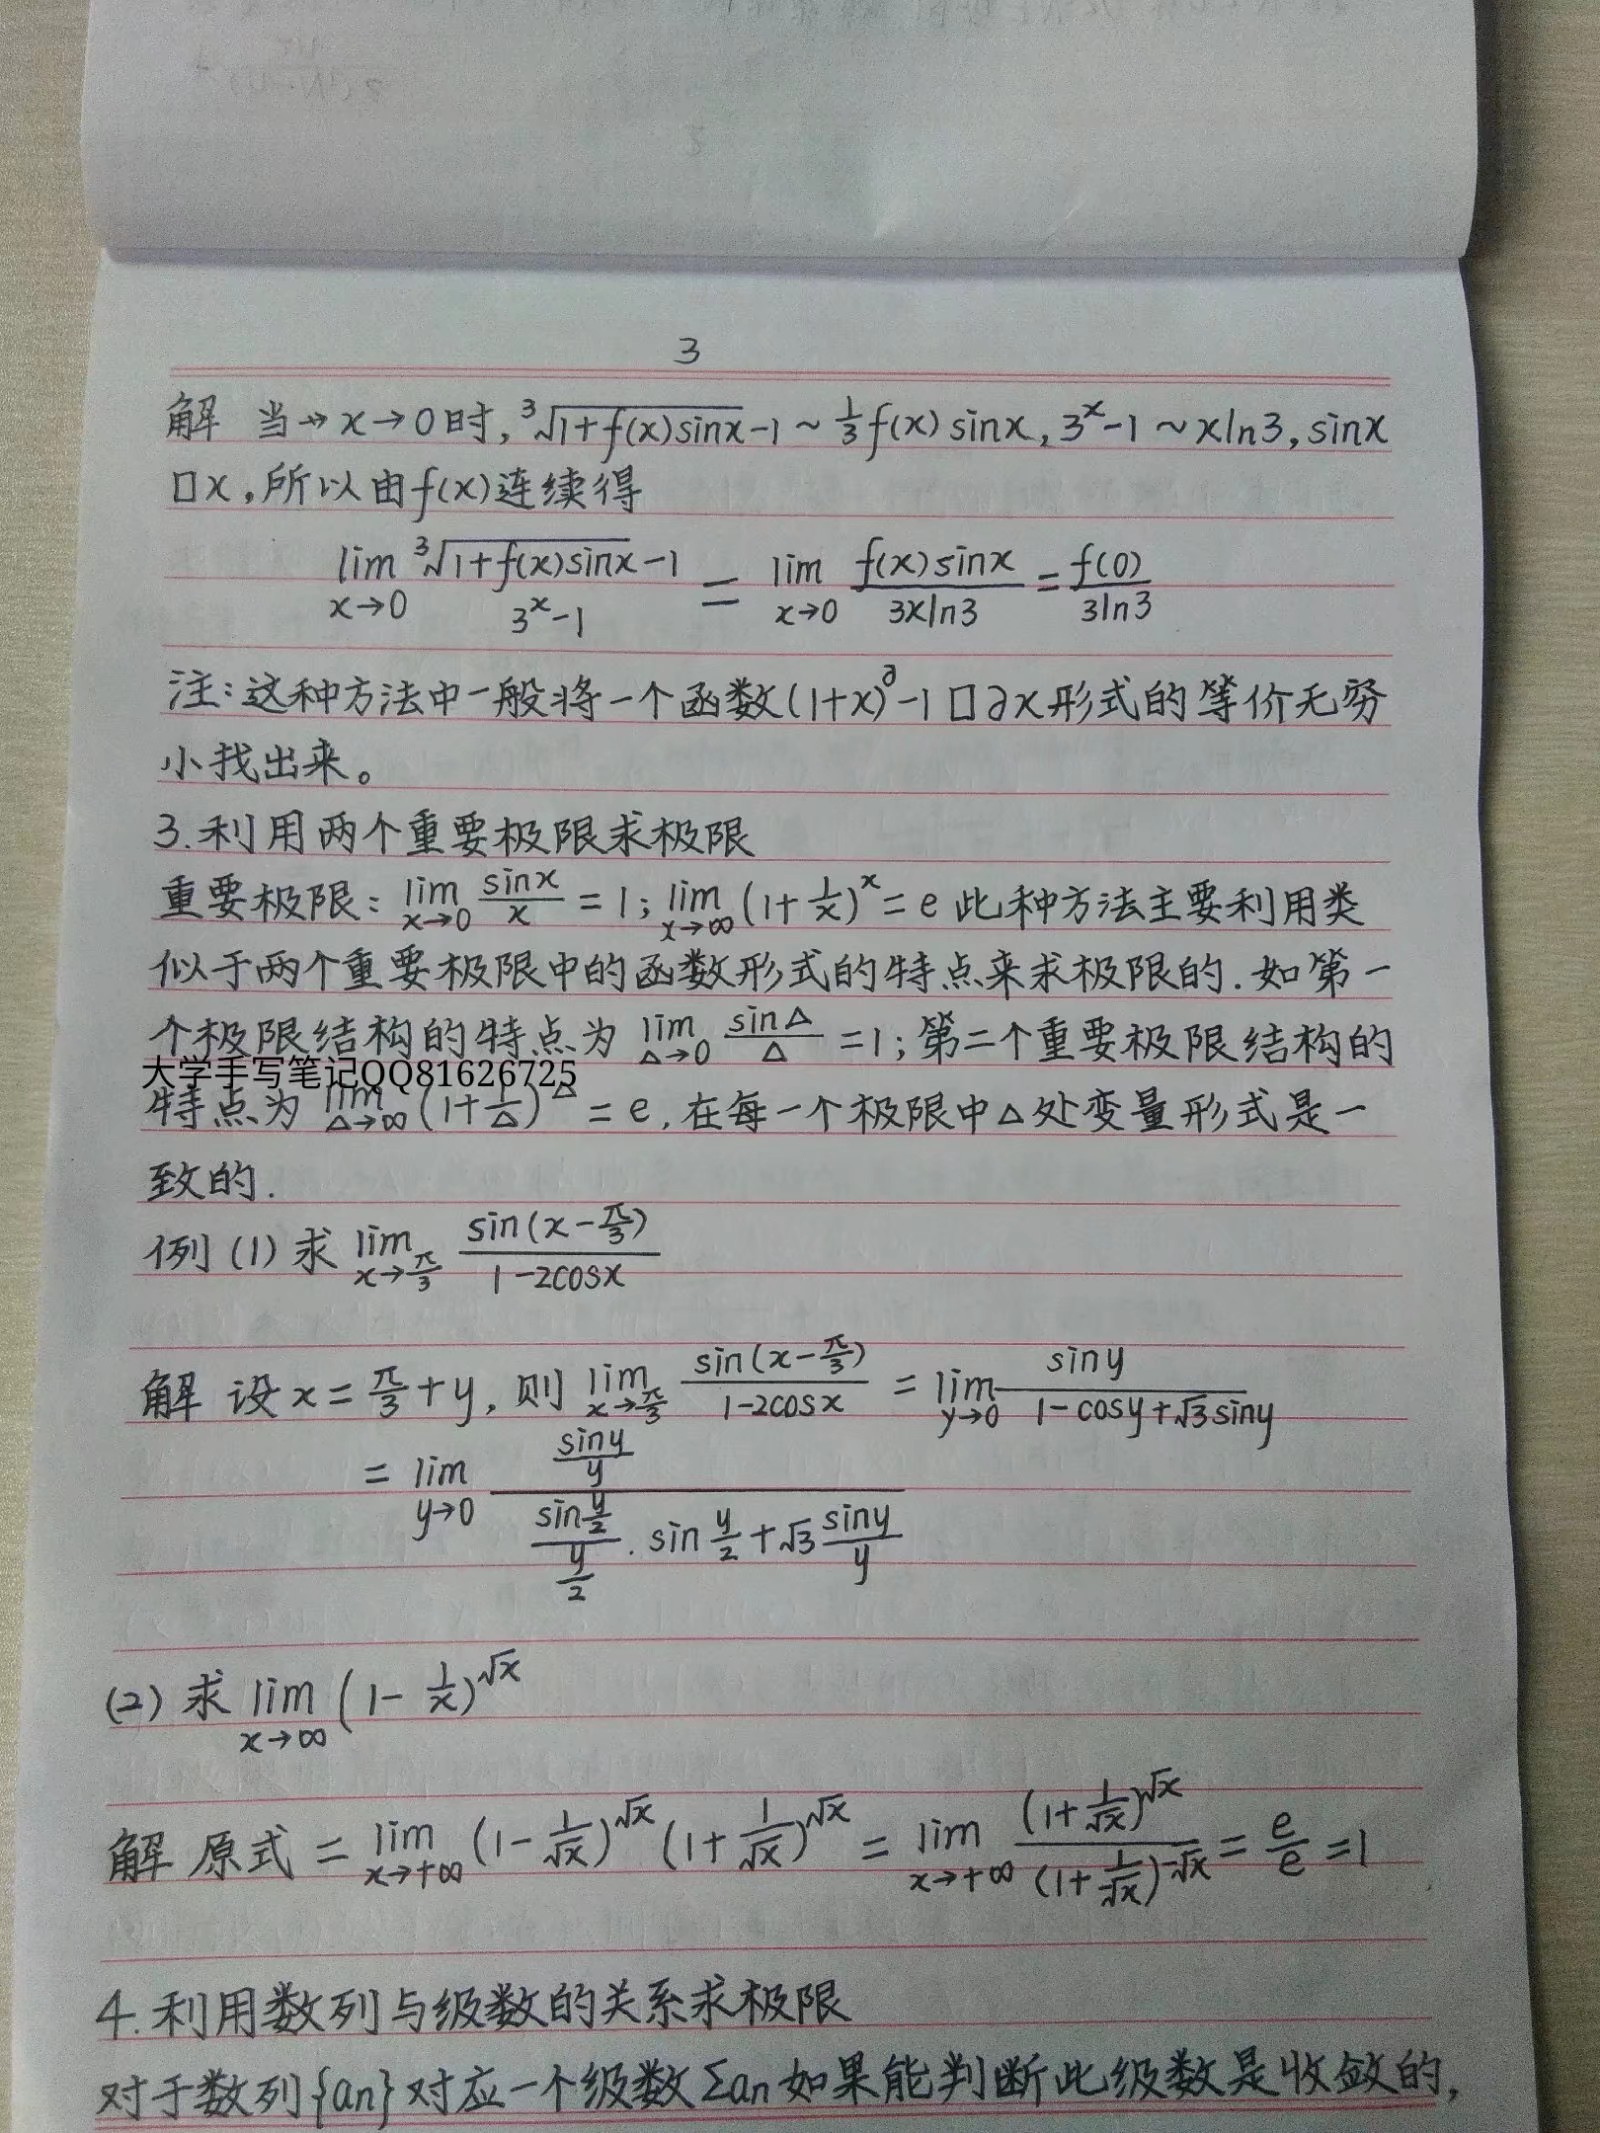 3
解 当→x→0时, ∛(1+f(x)sinx)-1 ~ 1/3 f(x) sinx, 3^x-1 ~ xln3, sinx
□x,所以由f(x)连续得
lim x→0 (∛(1+f(x)sinx)-1)/(3^x-1) = lim x→0 (f(x)sinx)/(3xln3) = f(0)/(3ln3)
注:这种方法中一般将一个函数(1+x)^∂-1□∂x形式的等价无穷
小找出来。
3.利用两个重要极限求极限
重要极限: lim x→0 sinx/x = 1; lim x→∞ (1+1/x)^x = e 此种方法主要利用类
似于两个重要极限中的函数形式的特点来求极限的.如第一
个极限结构的特点为 lim △→0 sin△/△ =1;第二个重要极限结构的
大学手写笔记QQ81626725
特点为 lim △→∞ (1+1/△)^△ = e,在每一个极限中△处变量形式是一
致的.
例(1)求 lim x→π/3 sin(x-π/3)/(1-2cosx)
解 设x=π/3+y,则 lim x→π/3 sin(x-π/3)/(1-2cosx) = lim y→0 siny/(1-cosy+√3siny)
= lim y→0 (siny/y)/((sin y/2)/(y/2) . sin y/2+√3 siny/y)
(2)求 lim x→∞ (1-1/x)^√x
解 原式 = lim x→+∞ (1-1/√x)^√x (1+1/√x)^√x = lim x→+∞ (1+1/√x)^√x/(1+1/-√x)^-√x = e/e =1
4.利用数列与级数的关系求极限
对于数列{an}对应一个级数Σan如果能判断此级数是收敛的,